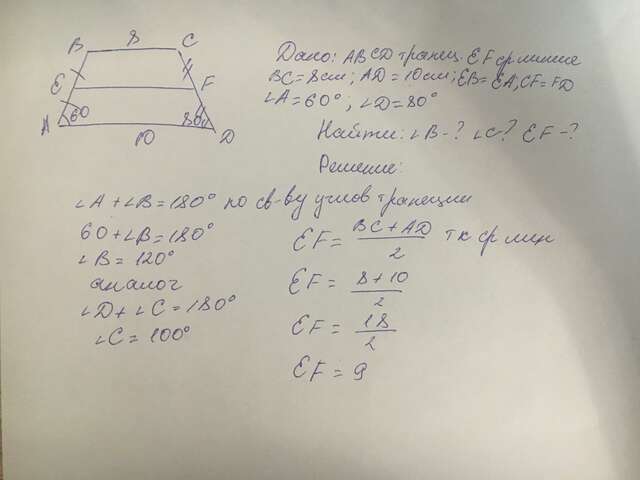 B 8 C
E F
A 60 80 D
10
Дано: ABCD трапец. EF ср линие
BC = 8см; AD = 10см; EB = EA, CF = FD
∠A = 60°; ∠D = 80°
Найти: ∠B - ? ∠C - ? EF - ?
Решение:
∠A + ∠B = 180° по св-ву углов трапеции
60 + ∠B = 180°
∠B = 120°
аналог
∠D + ∠C = 180°
∠C = 100°
EF = (BC + AD)/2 тк ср лин
EF = (8 + 10)/2
EF = 18/2
EF = 9